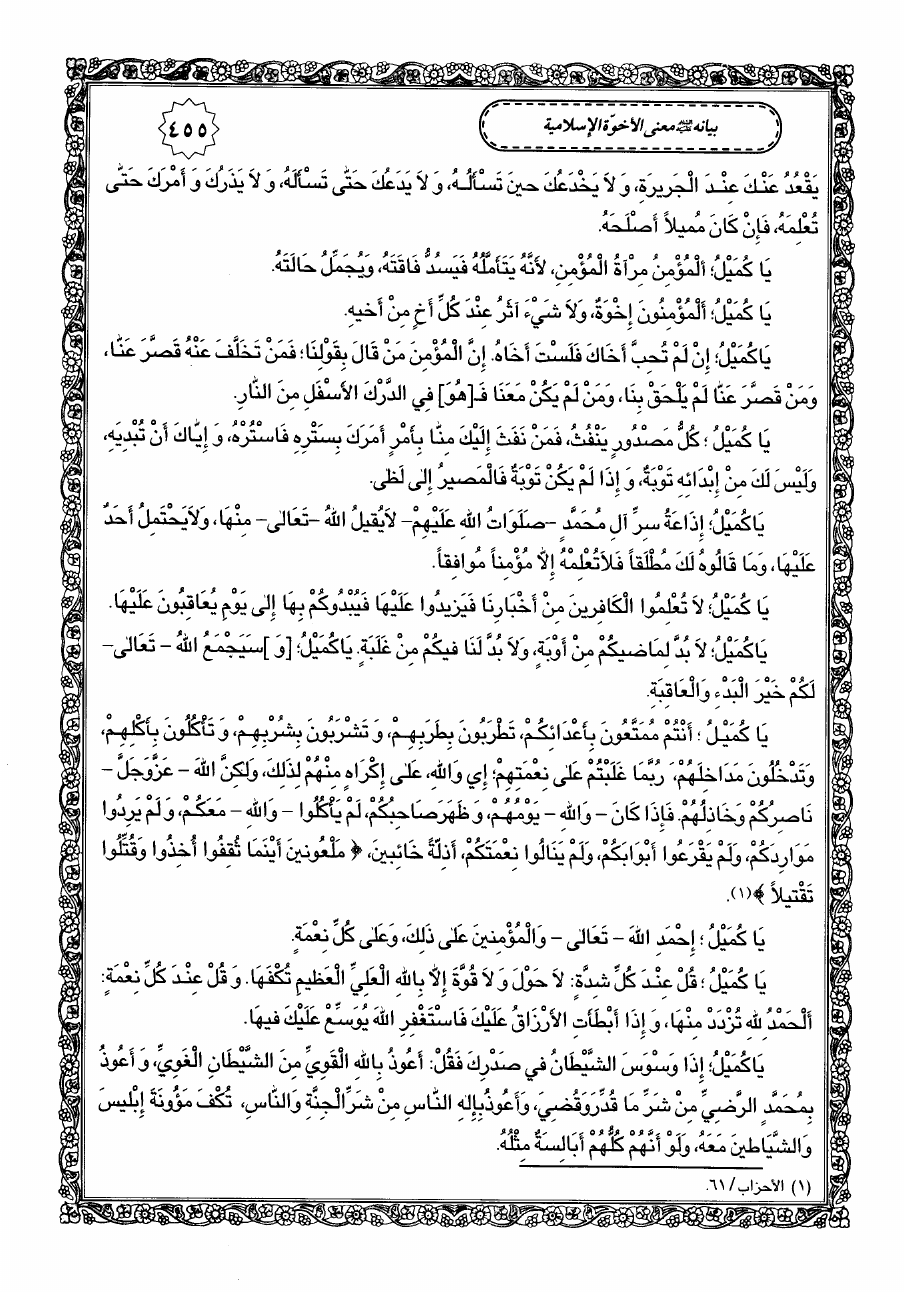 بيانه عليه السلام معنى الأخوّة الإسلامية
٤٥٥
يَقْعُدُ عَنْكَ عِنْدَ الْجَريرَةِ، وَ لاَ يَخْدَعُكَ حينَ تَسْأَلُهُ، وَ لاَ يَدَعُكَ حَتّٰى تَسْأَلَهُ، وَ لاَ يَذَرُكَ وَ أَمْرَكَ حَتّٰى
تُعْلِمَهُ، فَإِنْ كَانَ مُميلاً أَصْلَحَهُ.
يَا كُمَيْلُ؛ اَلْمُؤْمِنُ مِرْآةُ الْمُؤْمِنِ، لأَنَّهُ يَتَأَمَّلُهُ فَيَسُدُّ فَاقَتَهُ، وَيُجَمِّلُ حَالَتَهُ.
يَا كُمَيْلُ؛ اَلْمُؤْمِنُونَ إِخْوَةٌ، وَلاَ شَيْءَ آثَرُ عِنْدَ كُلِّ أَخٍ مِنْ أَخيهِ.
يَاكُمَيْلُ؛ إِنْ لَمْ تُحِبَّ أَخَاكَ فَلَسْتَ أَخَاهُ. إِنَّ الْمُؤْمِنَ مَنْ قَالَ بِقَوْلِنَا؛ فَمَنْ تَخَلَّفَ عَنْهُ قَصَّرَ عَنّا،
وَمَنْ قَصَّرَ عَنّا لَمْ يَلْحَقْ بِنَا، وَمَنْ لَمْ يَكُنْ مَعَنَا فَـ[هُوَ] فِي الدَّرْكِ الأَسْفَلِ مِنَ النّارِ.
يَا كُمَيْلُ ؛ كُلُّ مَصْدُورٍ يَنْفُثُ، فَمَنْ نَفَثَ إِلَيْكَ مِنّا بِأَمْرٍ أَمَرَكَ بِسَتْرِهِ فَاسْتُرْهُ، وَ إِيّاكَ أَنْ تُبْدِيَهِ،
وَلَيْسَ لَكَ مِنْ إِبْدَائِهِ تَوْبَةٌ، وَ إِذَا لَمْ يَكُنْ تَوْبَةٌ فَالْمَصيرُ إِلٰى لَظٰى.
يَاكُمَيْلُ؛ إِذَاعَةُ سِرِّ آلِ مُحَمَّدٍ -صَلَوَاتُ اللهِ عَلَيْهِمْ- لاَيُقيلُ اللهُ -تَعَالٰى- مِنْهَا، وَلاَيَحْتَمِلُ أَحَدٌ
عَلَيْهَا، وَمَا قَالُوهُ لَكَ مُطْلَقاً فَلاَتُعْلِمْهُ إِلّا مُؤْمِناً مُوافِقاً.
يَا كُمَيْلُ؛ لاَ تُعْلِمُوا الْكَافِرينَ مِنْ أَخْبَارِنَا فَيَزيدُوا عَلَيْهَا فَيُبْدُوكُمْ بِهَا إِلٰى يَوْمِ يُعَاقِبُونَ عَلَيْهَا.
يَاكُمَيْلُ؛ لاَ بُدَّ لِمَاضيكُمْ مِنْ أَوْبَةٍ، وَلاَ بُدَّ لَنَا فيكُمْ مِنْ غَلَبَةٍ. يَاكُمَيْلُ؛ [وَ] سَيَجْمَعُ اللهُ - تَعَالٰى-
لَكُمْ خَيْرَ الْبَدْءِ وَالْعَاقِبَةِ.
يَا كُمَيْلُ ؛ أَنْتُمْ مُمَتَّعُونَ بِأَعْدَائِكُمْ، تَطْرَبُونَ بِطَرَبِهِمْ، وَ تَشْرَبُونَ بِشُرْبِهِمْ، وَ تَأْكُلُونَ بِأَكْلِهِمْ،
وَتَدْخُلُونَ مَدَاخِلَهُمْ، رُبَّمَا غَلَبْتُمْ عَلٰى نِعْمَتِهِمْ؛ إِي وَاللهِ، عَلٰى إِكْرَاهٍ مِنْهُمْ لِذٰلِكَ، وَلٰكِنَّ اللهَ - عَزَّوَجَلَّ -
نَاصِرُكُمْ وَخَاذِلُهُمْ. فَإِذَا كَانَ - وَاللهِ - يَوْمُهُمْ، وَ ظَهَرَ صَاحِبُكُمْ، لَمْ يَأْكُلُوا - وَاللهِ - مَعَكُمْ، وَ لَمْ يَرِدُوا
مَوَارِدَكُمْ، وَلَمْ يَقْرَعُوا أَبْوَابَكُمْ، وَلَمْ يَنَالُوا نِعْمَتَكُمْ، أَذِلَّةً خَائِبينَ، ﴿ مَلْعُونينَ أَيْنَمَا ثُقِفُوا أُخِذُوا وَقُتِّلُوا
تَقْتيلاً ﴾(١).
يَا كُمَيْلُ ؛ إِحْمَدِ اللهَ - تَعَالٰى - وَالْمُؤْمِنينَ عَلٰى ذٰلِكَ، وَعَلٰى كُلِّ نِعْمَةٍ.
يَا كُمَيْلُ ؛ قُلْ عِنْدَ كُلِّ شِدَّةٍ: لاَ حَوْلَ وَ لاَ قُوَّةَ إِلّا بِاللهِ الْعَلِيِّ الْعَظيمِ تُكْفَهَا. وَ قُلْ عِنْدَ كُلِّ نِعْمَةٍ:
اَلْحَمْدُ لِلهِ تُزْدَدْ مِنْهَا، وَ إِذَا أَبْطَأَتِ الأَرْزَاقُ عَلَيْكَ فَاسْتَغْفِرِ اللهَ يُوَسِّعْ عَلَيْكَ فيهَا.
يَاكُمَيْلُ؛ إِذَا وَسْوَسَ الشَّيْطَانُ في صَدْرِكَ فَقُلْ: أَعُوذُ بِاللهِ الْقَوِيِّ مِنَ الشَّيْطَانِ الْغَوِيِّ، وَ أَعُوذُ
بِمُحَمَّدٍ الرَّضِيِّ مِنْ شَرِّ مَا قُدِّرَ وَقُضِيَ، وَأَعُوذُبِإِلٰهِ النّاسِ مِنْ شَرِّالْجِنَّةِ وَالنّاسِ، تُكْفَ مَؤُونَةَ إِبْليسَ
وَالشَّيَاطينَ مَعَهُ، وَلَوْ أَنَّهُمْ كُلُّهُمْ أَبَالِسَةٌ مِثْلُهُ.
(١) الأحزاب/ ٦١.